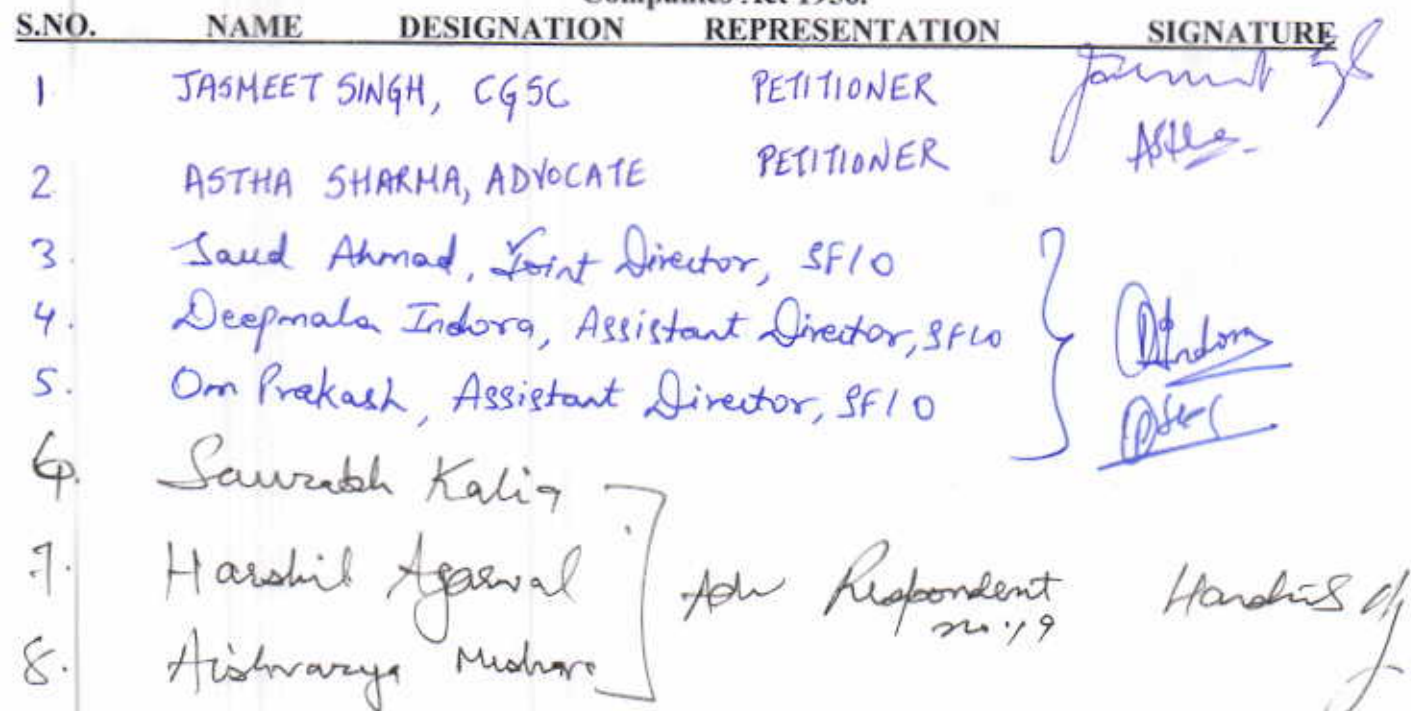 Companies Act 1956.
S.NO. NAME DESIGNATION REPRESENTATION SIGNATURE
1 JASMEET SINGH, CGSC PETITIONER
2 ASTHA SHARMA, ADVOCATE PETITIONER Astha
3. Saud Ahmad, Joint Director, SFIO
4. Deepmala Indora, Assistant Director, SFIO DIndora
5. Om Prakash, Assistant Director, SFIO
6. Saurabh Kalia
7. Harshil Agarwal Adv Respondent Harshil
no. 19
8. Aishvarya Mishra